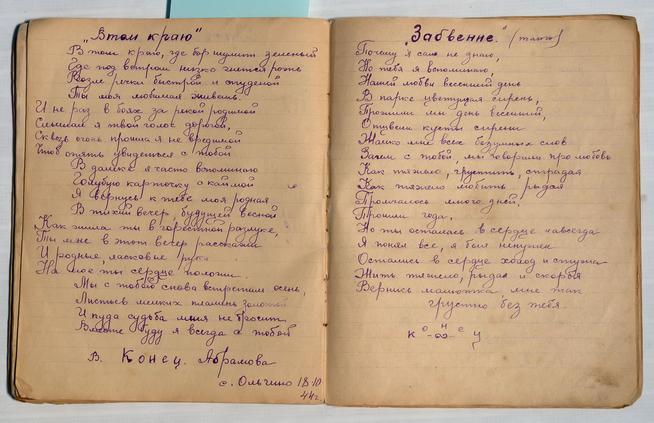 „В том краю"
В том краю, где бор шумит зеленый
Где под ветром низко гнется рожь
Возле речки быстрой и студеной
Ты моя любимая живешь.
И не раз в боях за рекой родимой
Слышал я твой голос дорогой,
Сквозь огонь прошел я не вредимой
Чтоб опять увидеться с тобой
В далеке я часто вспоминаю
Голубую карточку с каймой
Я вернусь к тебе моя родная
В тихий вечер, будущей весной
Как жила ты в горестной разлуке,
Ты мне в этот вечер расскажи
И родные, ласковые руки
На мое ты сердце положи.
Мы с тобой снова встретим осень,
Листьев мелких пламень золотой
И куда судьба меня не бросит
Вместе буду я всегда с тобой
В. Конец. Абрамова
с. Ольгино 18.10
44г.
„Забвение." (танго)
Почему я сам не знаю,
Но тебя я вспоминаю,
Нашей любви весенний день
В парке цветущая сирень,
Прожили мы день весенний,
Отцвели кусты сирени
Жалко мне всех безумных слов
Зачем с тобой, мы говорили про любовь
Как тяжело, грустить, страдая
Как тяжело любить рыдая
Промчалось много дней.
Прошли года,
Но ты осталась в сердце навсегда
Я понял все, я был ненужен
Остались в сердце холод и стужа
Жить тяжело, рыдая и скорбя
Вернись малютка мне так
грустно без тебя.
конец